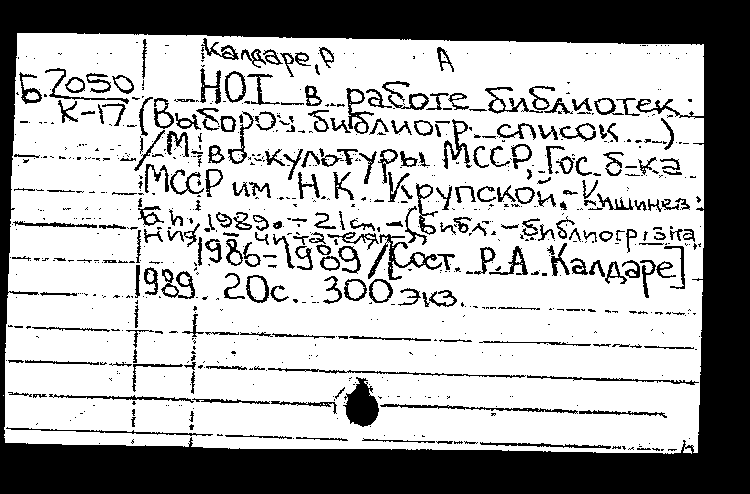 Калдаре, Р А
Б 7050
К-17
НОТ в работе библиотек:
(Выбороч. библиогр. список ...)
/М-во культуры МССР, Гос. б-ка
МССР им. Н.К. Крупской. - Кишинев:
Б.и., 1989. - 21 см. - (Библ. - библиогр.
ния - читателям)
1986-1989 / [Сост. Р.А. Калдаре]
1989. 20с. 300 экз.